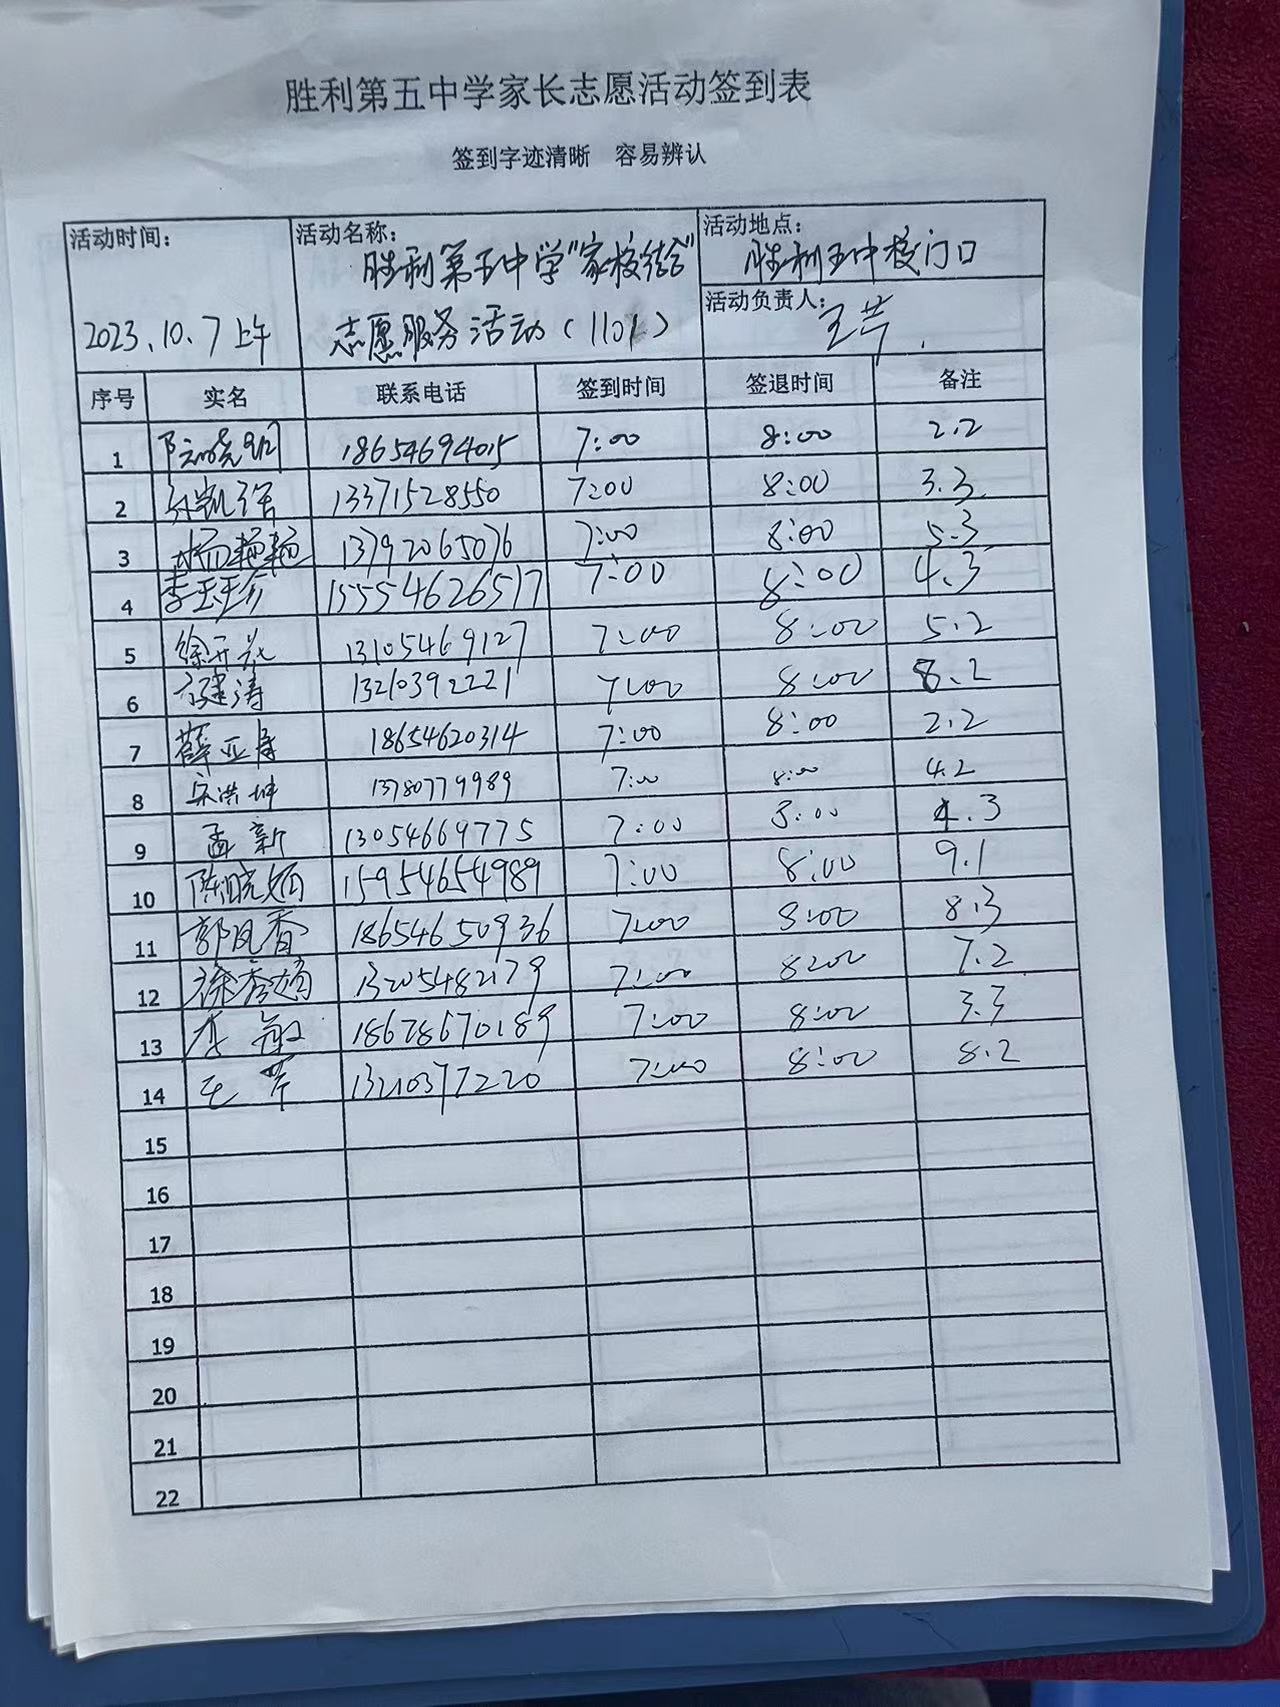 胜利第五中学家长志愿活动签到表
签到字迹清晰 容易辨认
活动时间: 2023.10.7上午
活动名称: 胜利第五中学"家校结合"
志愿服务活动(1101)
活动地点: 胜利五中校门口
活动负责人: 王芹
序号 实名 联系电话 签到时间 签退时间 备注
1 18654694015 7:00 8:00 2.2
2 13371528550 7:00 8:00 3.3
3 杨艳艳 13792065076 7:00 8:00 5.3
4 李玉珍 15554626517 7:00 8:00 4.3
5 徐开花 13105469127 7:00 8:00 5.2
6 13210392221 7:00 8:00 8.2
7 薛亚眉 18654620314 7:00 8:00 2.2
8 宋洪坤 13780779989 7:00 8:00 4.2
9 孟新 13054669775 7:00 8:00 4.3
10 陈晓娟 15954654989 7:00 8:00 9.1
11 郭凤香 18654650936 7:00 8:00 8.3
12 徐秀娟 13205482179 7:00 8:00 7.2
13 李敏 18678670189 7:00 8:00 3.3
14 王芹 13210377220 7:00 8:00 8.2
15
16
17
18
19
20
21
22